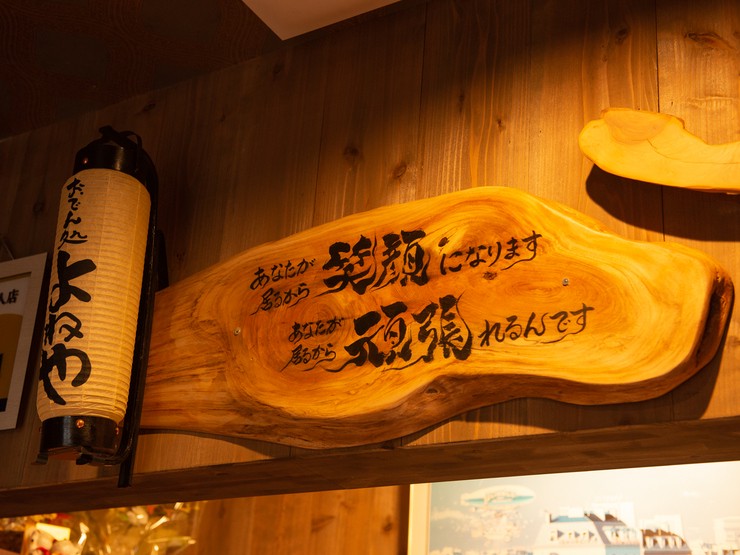 おでん処
よねや
あなたが
居るから
笑顔になります
あなたが
居るから
頑張れるんです
入店